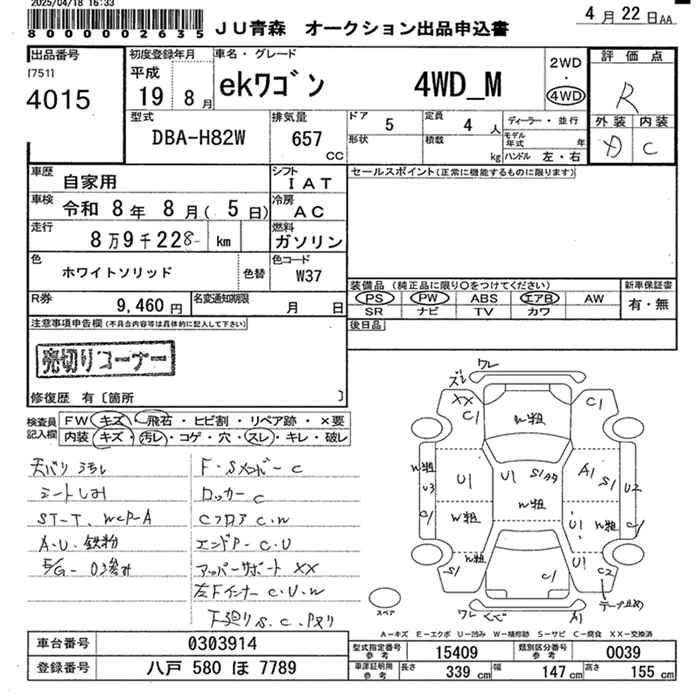 2025/04/18 16:33
8000002635
JU青森 オークション出品申込書
4月22日AA
出品番号
[751]
4015
初度登録年月
平成
19 8月
車名・グレード
ekワゴン 4WD_M
2WD
・
4WD
評価点
R
外装 内装
C
型式
DBA-H82W
排気量
657
CC
ドア
5
定員
4人
形状
積数
kg
ディーラー・並行
モデル年式 年
ハンドル 左・右
車歴
自家用
シフト
IAT
車検
令和 8年 8月( 5日)
冷房
AC
走行
8万9千228 km
燃料
ガソリン
色
ホワイトソリッド
色替
色コード
W37
R券
9,460円
名変通知期限
月 日
セールスポイント(正常に機能するものに限ります)
装備品 (純正品に限り○をつけてください)
PS PW ABS エアB AW
SR ナビ TV カワ
新車保証書
有・無
後日品
注意事項申告欄(不具合内容等は具体的に記入して下さい)
売切りコーナー
修復歴 有〔箇所 〕
検査員記入欄
FW キズ・飛石・ヒビ割・リペア跡・×要
内装 キズ・汚レ・コゲ・穴・スレ・キレ・破レ
天バリ汚れ
シートしみ
ST-T、WCP-A
A・U・鉄粉
F・Sメンバー C
ロッカー C
Cフロア C・W
エンドP- C・U
アッパーサポート XX
左Fインナー C・U・W
下廻り S、C、
ワレ
ズレ
XX
C1
W粗
C1
W粗
U3
U1
U1
W粗
A1
S1
U2
C1
W粗
U1
W粗
C1
W粗
S1
C1
U1
C2
テープ止め
ワレ
A1
スペア
A-キズ E-エクボ U-凹み W-補修跡 S-サビ C-腐食 XX-交換済
車台番号
0303914
登録番号
八戸 580 ほ 7789
型式指定番号
参考
15409
類別区分番号
参考
0039
車庫証明用
参考
長さ
339 cm
幅
147 cm
高さ
155 cm